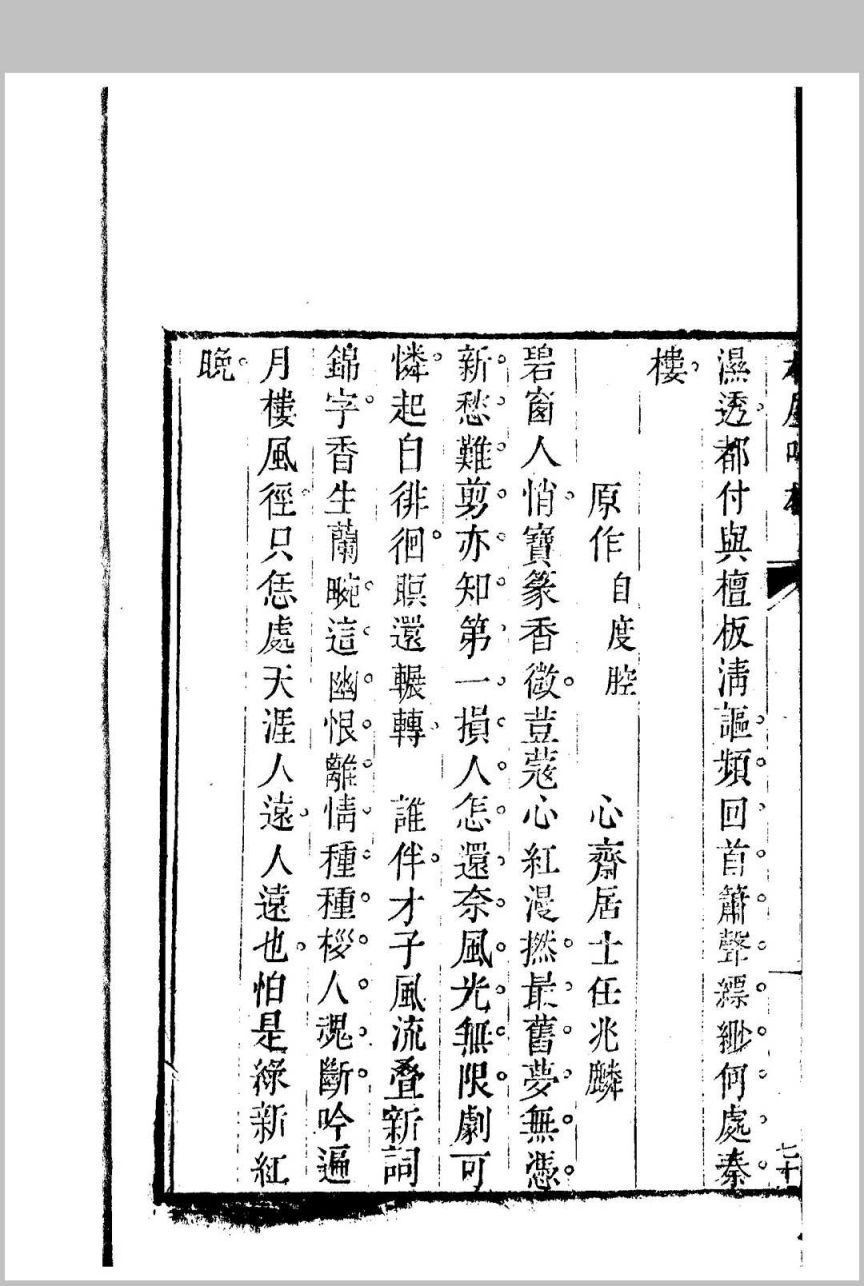 濕透都付與檀板淸謳頻回首簫聲縹緲何處秦
樓
原作 自度腔 心齋居士任兆麟
碧窗人悄寶篆香微荳蔻心紅漫撚最舊夢無憑
新愁難剪亦知第一損人怎還奈風光無限劇可
憐起自徘徊瞑還輾轉 誰伴才子風流疊新詞
錦字香生蘭畹這幽恨離情種種椤人魂斷吟遍
月樓風徑只恁處天涯人遠人遠也怕是綠新紅
晚